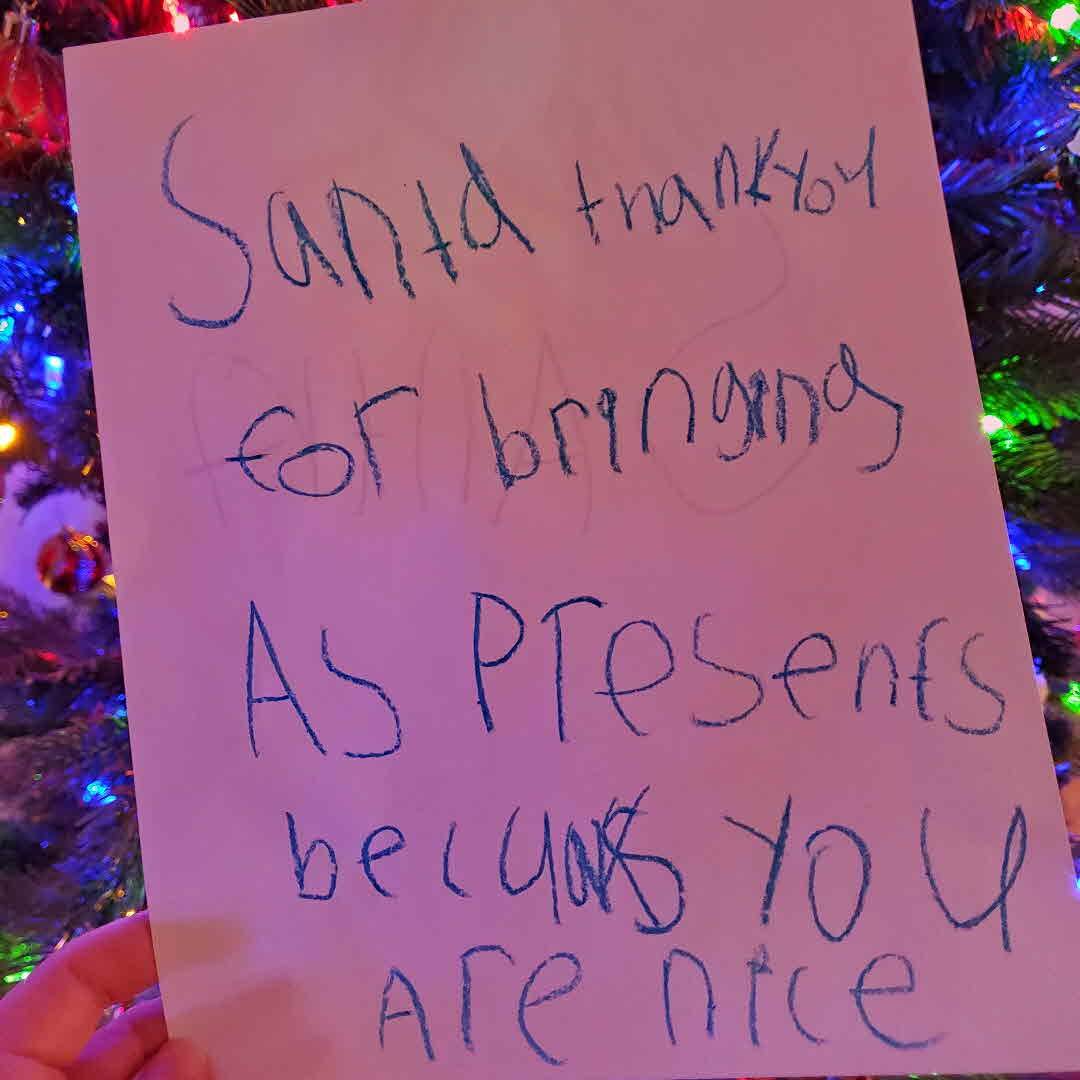 Santa thank you
for bringing
As Presents
becuas you
Are nice